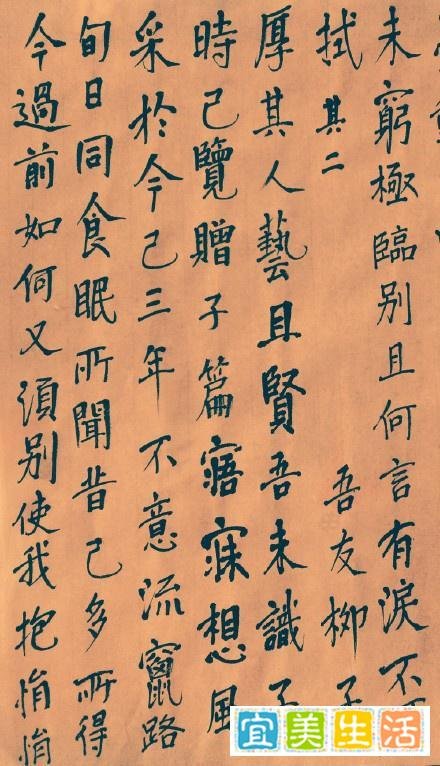 未窮極臨别且何言有淚不
拭其二 吾友柳子
厚其人藝且賢吾未識子
時已覽贈子篇寤寐想風
采於今已三年不意流竄路
旬日同食眠所聞昔已多所得
今過前如何又須别使我抱悁悁
宜美生活